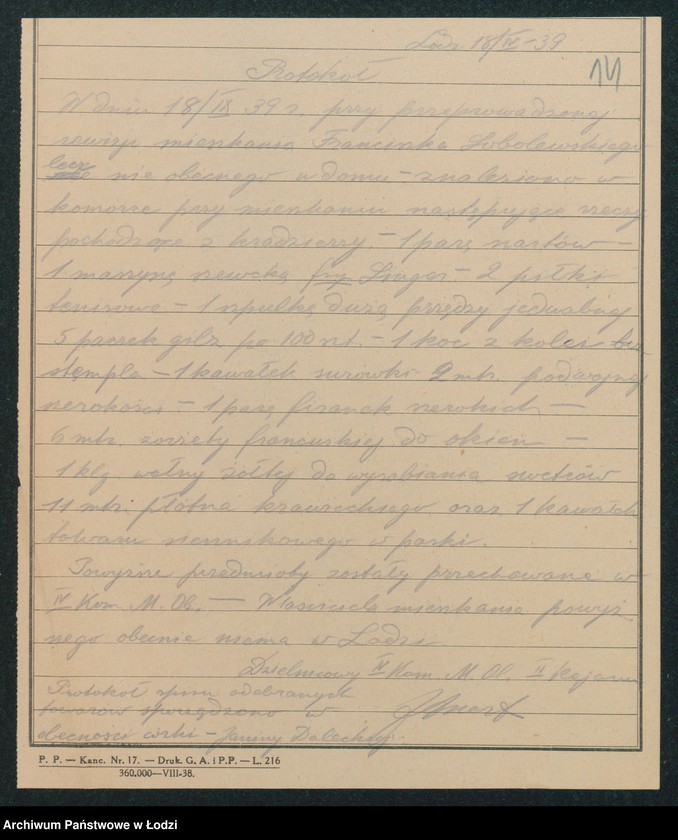 Łódź 18/IX-39
14
Protokół
W dniu 18/IX 39 r. przy przeprowadzonej
rewizji mieszkania Franciszka Sobolewskiego
lecz nie obecnego w domu – znaleziono w
komorze przy mieszkaniu następujące rzeczy
pochodzące z kradzieży – 1 parę nartów –
1 maszynę szewcką firmy Singer – 2 piłki
tenisowe – 1 szpulkę dużą przędzy jedwabnej
5 paczek gilz po 100 szt. – 1 koc z kolei bez
stempla – 1 kawałek surówki 2 mtr. podwójnej
szerokości – 1 parę firanek szerokich –
6 mtr. francuskiej do okien –
1 klg. wełny żółtej do wyrabiania swetrów
11 mtr. płótna krawieckiego oraz 1 kawałek
towaru siennikowego w paski.
Powyższe przedmioty zostały przechowane w
IV Kom. M. Ob. – Właściciela mieszkania powyż
szego obecnie niema w Łodzi
Dzielnicowy IV Kom. M. Ob. II Rejonu
Protokół spisu odebranych
towarów sporządzono w
obecności córki – Janiny
P. P. — Kanc. Nr. 17. — Druk. G. A. i P.P. — L. 216
360.000—VIII-38.
Archiwum Państwowe w Łodzi